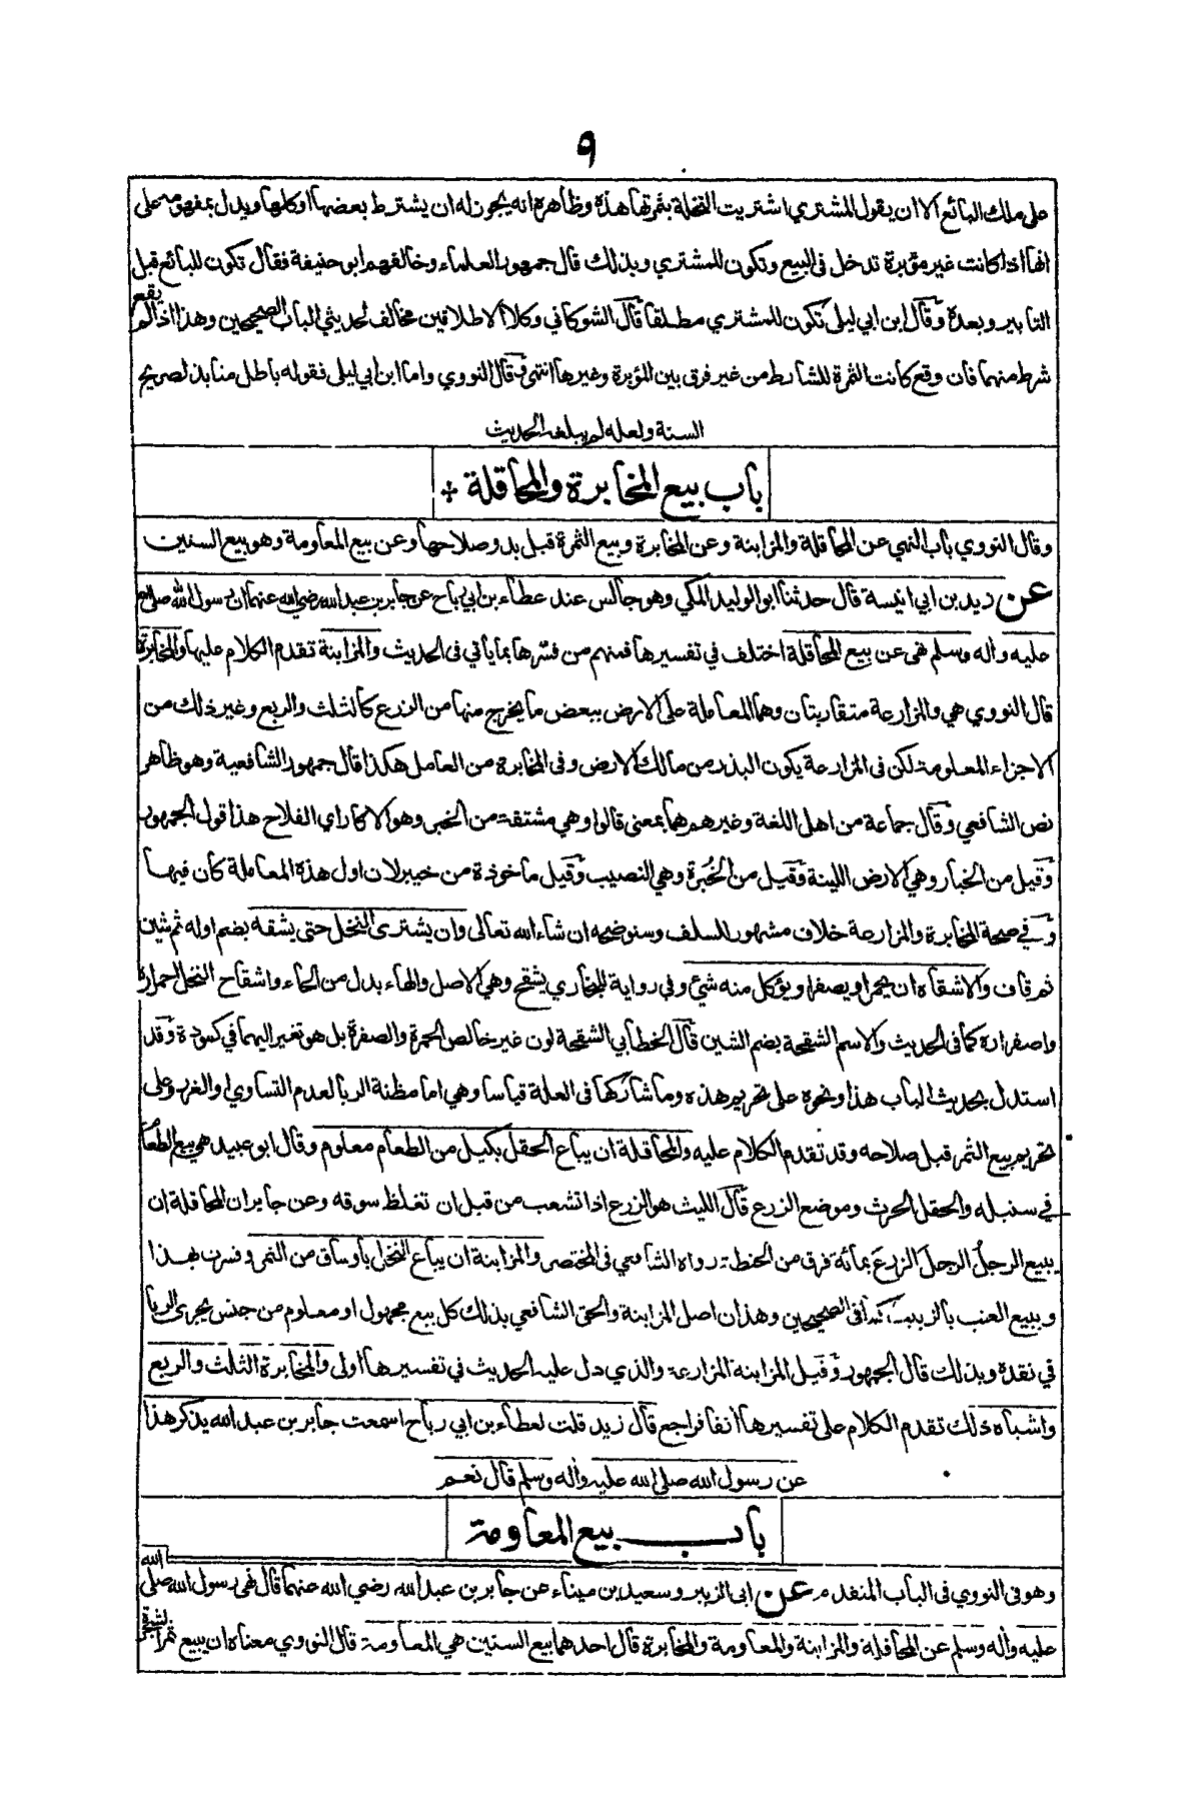 ٩
على ملك البائع الا ان يقول المشتري اشتريت النخلة بثمرتها هذه وظاهره انه يجوز له ان يشترط بعضها اوكلها ويدل بمفهومه على
انها اذا كانت غير مؤبرة تدخل فى البيع وتكون للمشتري وبذلك قال جمهور العلماء وخالفهم ابو حنيفة فقال تكون للبائع قبل
التابير وبعده وقال ابن ابي ليلى تكون للمشتري مطلقا قال الشوكاني وكلا الاطلاقين مخالف لحديثي الباب الصحيحين وهذا اذا لم يقع
شرط منهما فان وقع كانت الثمرة للشارط من غير فرق بين المؤبرة وغيرها انتهى قال النووي واما ابن ابي ليلى فقوله باطل منابذ لصريح
السنة ولعله لم يبلغه الحديث
باب بيع المخابرة والمحاقلة
وقال النووي باب النهي عن المحاقلة والمزابنة وعن المخابرة وبيع الثمرة قبل بدو صلاحها وعن بيع المعاومة وهو بيع السنين
عن زيد بن ابي انيسة قال حدثنا ابو الوليد المكي وهو جالس عند عطاء بن ابي رباح عن جابر بن عبد الله رضي الله عنهما ان رسول الله صلى الله
عليه واله وسلم نهى عن بيع المحاقلة اختلف في تفسيرها فمنهم من فسرها بما يأتي فى الحديث والمزابنة تقدم الكلام عليها والمخابرة
قال النووي هي والمزارعة متقاربتان وهما المعاملة على الارض ببعض ما يخرج منها من الزرع كالثلث والربع وغير ذلك من
الاجزاء المعلومة لكن فى المزارعة يكون البذر من مالك الارض وفى المخابرة من العامل هكذا قال جمهور الشافعية وهو ظاهر
نص الشافعي وقال جماعة من اهل اللغة وغيرهم هما بمعنى قالوا وهي مشتقة من الخبر وهو الاكار اي الفلاح هذا قول الجمهور
وقيل من الخبار وهي الارض اللينة وقيل من الخُبرة وهي النصيب وقيل ماخوذة من خيبر لان اول هذه المعاملة كان فيها
وفي صحة المخابرة والمزارعة خلاف مشهور للسلف وسنوضحه ان شاء الله تعالى وان يشترى النخل حتى يشقه بضم اوله ثم شين
ثم قاف والاشقاه ان يحمر او يصفر او يؤكل منه شئ وفى رواية للبخاري يشقح وهي الاصل والهاء بدل من الحاء واشقاح النخل احمراره
واصفراره كما فى الحديث والاسم الشقحة بضم الشين قال الخطابي الشقحة لون غير خالص الحمرة والصفرة بل هو تغير اليهما في كمودة وقد
استدل بحديث الباب هذا ونحوه على تحريم هذه وما شاركها فى العلة قياسا وهي اما مظنة الربا لعدم التساوي او الغرر وعلى
تحريم بيع الثمر قبل صلاحه وقد تقدم الكلام عليه والمحاقلة ان يباع الحقل بكيل من الطعام معلوم وقال ابو عبيد هي بيع الطعام
في سنبله والحقل الحرث وموضع الزرع قال الليث هو الزرع اذا تشعب من قبل ان تغلظ سوقه وعن جابر ان المحاقلة ان
يبيع الرجلُ الرجلَ الزرعَ بمائة فرق من الحنطة رواه الشافعي فى المختصر والمزابنة ان يباع النخل باوساق من التمر وفسرت بهذا
وببيع العنب بالزبيب كما فى الصحيحين وهذان اصل المزابنة والحق الشافعي بذلك كل بيع مجهول او معلوم من جنس يجرى الربا
في نقده وبذلك قال الجمهور وقيل المزابنة المزارعة والذي دل عليه الحديث في تفسيرها اولى والمخابرة الثلث والربع
واشباه ذلك تقدم الكلام على تفسيرها انفا فراجع قال زيد قلت لعطاء بن ابي رباح اسمعت جابر بن عبد الله يذكر هذا
عن رسول الله صلى الله عليه واله وسلم قال نعم
باب بيع المعاومة
وهو فى النووي فى الباب المتقدم عن ابى الزبير وسعيد بن ميناء عن جابر بن عبد الله رضي الله عنهما قال نهى رسول الله صلى الله
عليه واله وسلم عن المحاقلة والمزابنة والمعاومة والمخابرة قال احدهما بيع السنين هي المعاومة قال النووي معناه ان يبيع ثمر الشجرة